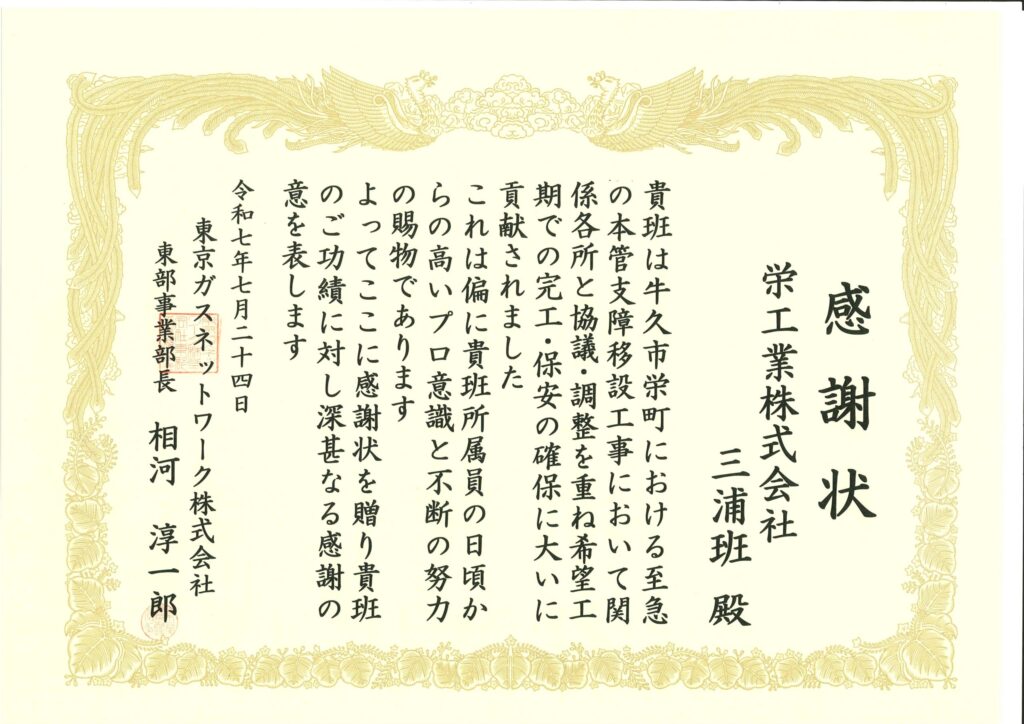 感謝状
栄工業株式会社
三浦班 殿
貴班は牛久市栄町における至急
の本管支障移設工事において関
係各所と協議・調整を重ね希望工
期での完工・保安の確保に大いに
貢献されました
これは偏に貴班所属員の日頃か
らの高いプロ意識と不断の努力
の賜物であります
よってここに感謝状を贈り貴班
のご功績に対し深甚なる感謝の
意を表します
令和七年七月二十四日
東京ガスネットワーク株式会社
東部事業部長 相河 淳一郎